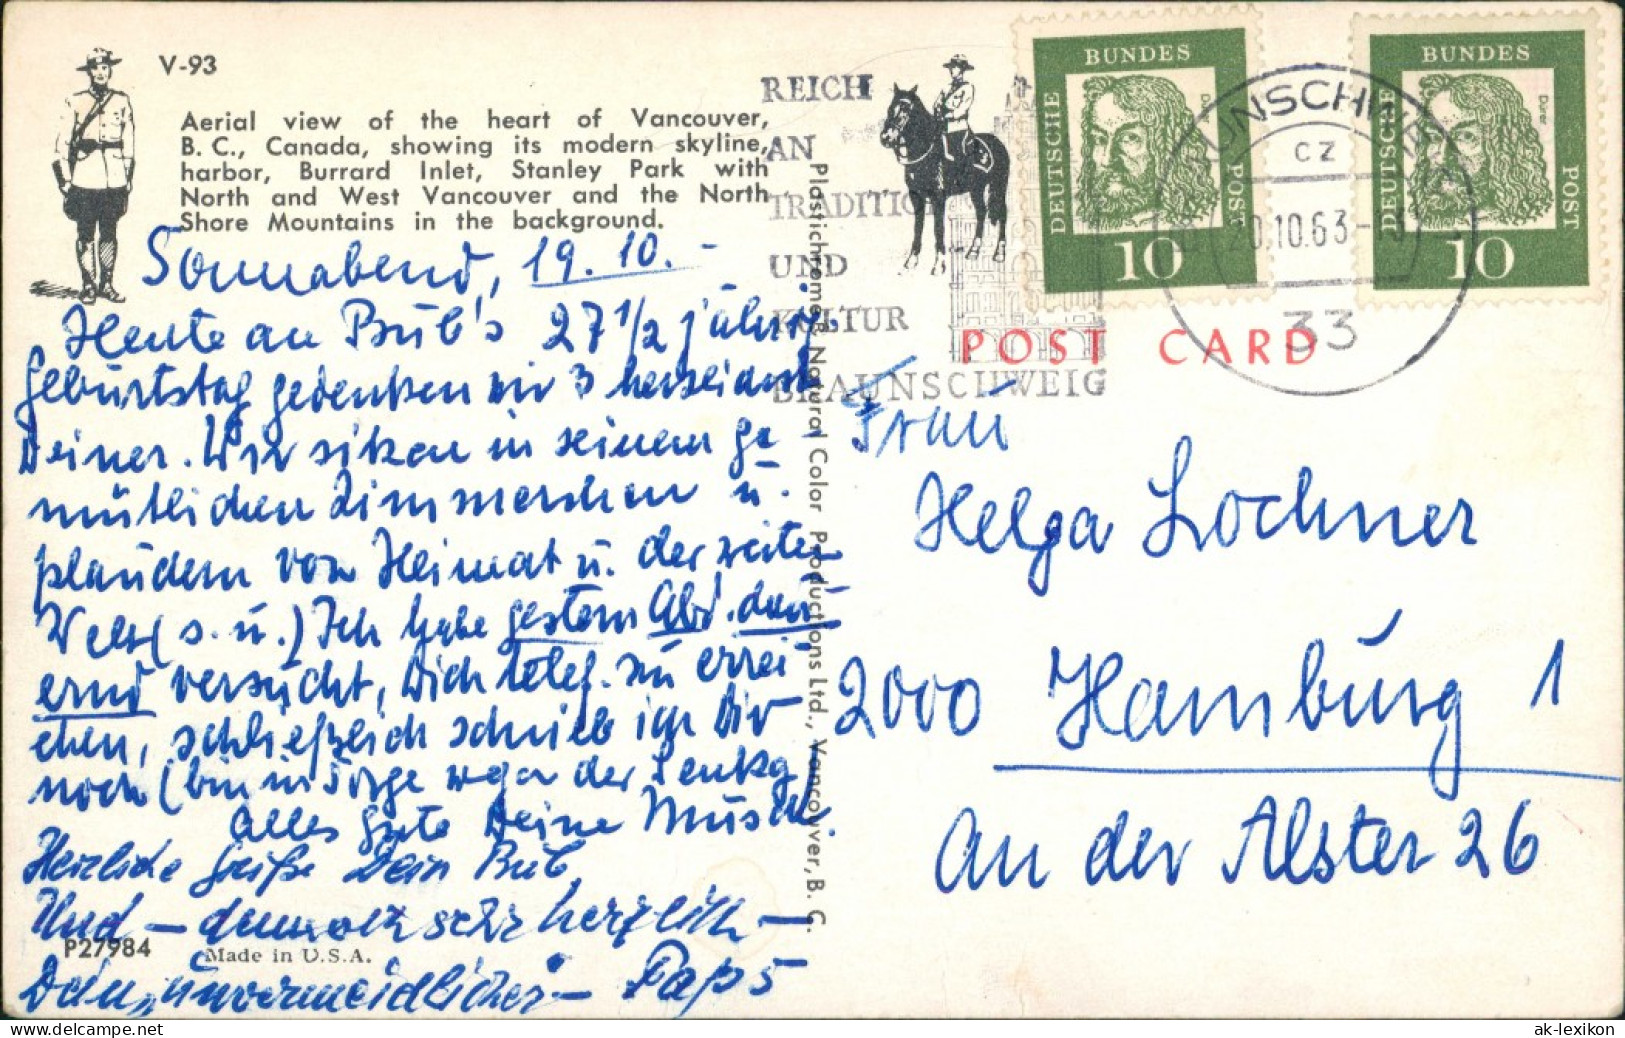 V-93
Aerial view of the heart of Vancouver,
B. C., Canada, showing its modern skyline,
harbor, Burrard Inlet, Stanley Park with
North and West Vancouver and the North
Shore Mountains in the background.
Sonnabend, 19. 10. -
Heute an Bub's 27 1/2 jähri
geburtstag gedenken wir 3 herzeinst
Deiner. Wir sitzen in seinem ge
mütlichen Zimmerchen u.
plaudern von Heimat u. der weiten
Welt (s. u.) Ich habe gestern Abd. dau
ernd versucht, Dich telef. zu errei
chen, schließlich schrieb ich Dir
noch (bin in Sorge wegen der
Alles Gute Deine
Herzliche Grüße Dein Bub,
Und - dennoch sehr herzlich -
Dein „unvermeidlicher" - Paps
P27984
Made in U.S.A.
Plastichrome & Natural Color Productions Ltd., Vancouver, B. C.
REICH
AN
TRADITIO
UND
KULTUR
BRAUNSCHWEIG
DEUTSCHE
BUNDES
POST
10
DEUTSCHE
BUNDES
POST
Dürer
10
UNSCHWEIG
CZ
0.10.63-
33
POST CARD
Frau
Helga Lochner
2000 Hamburg 1
An der Alster 26
ak-lexikon